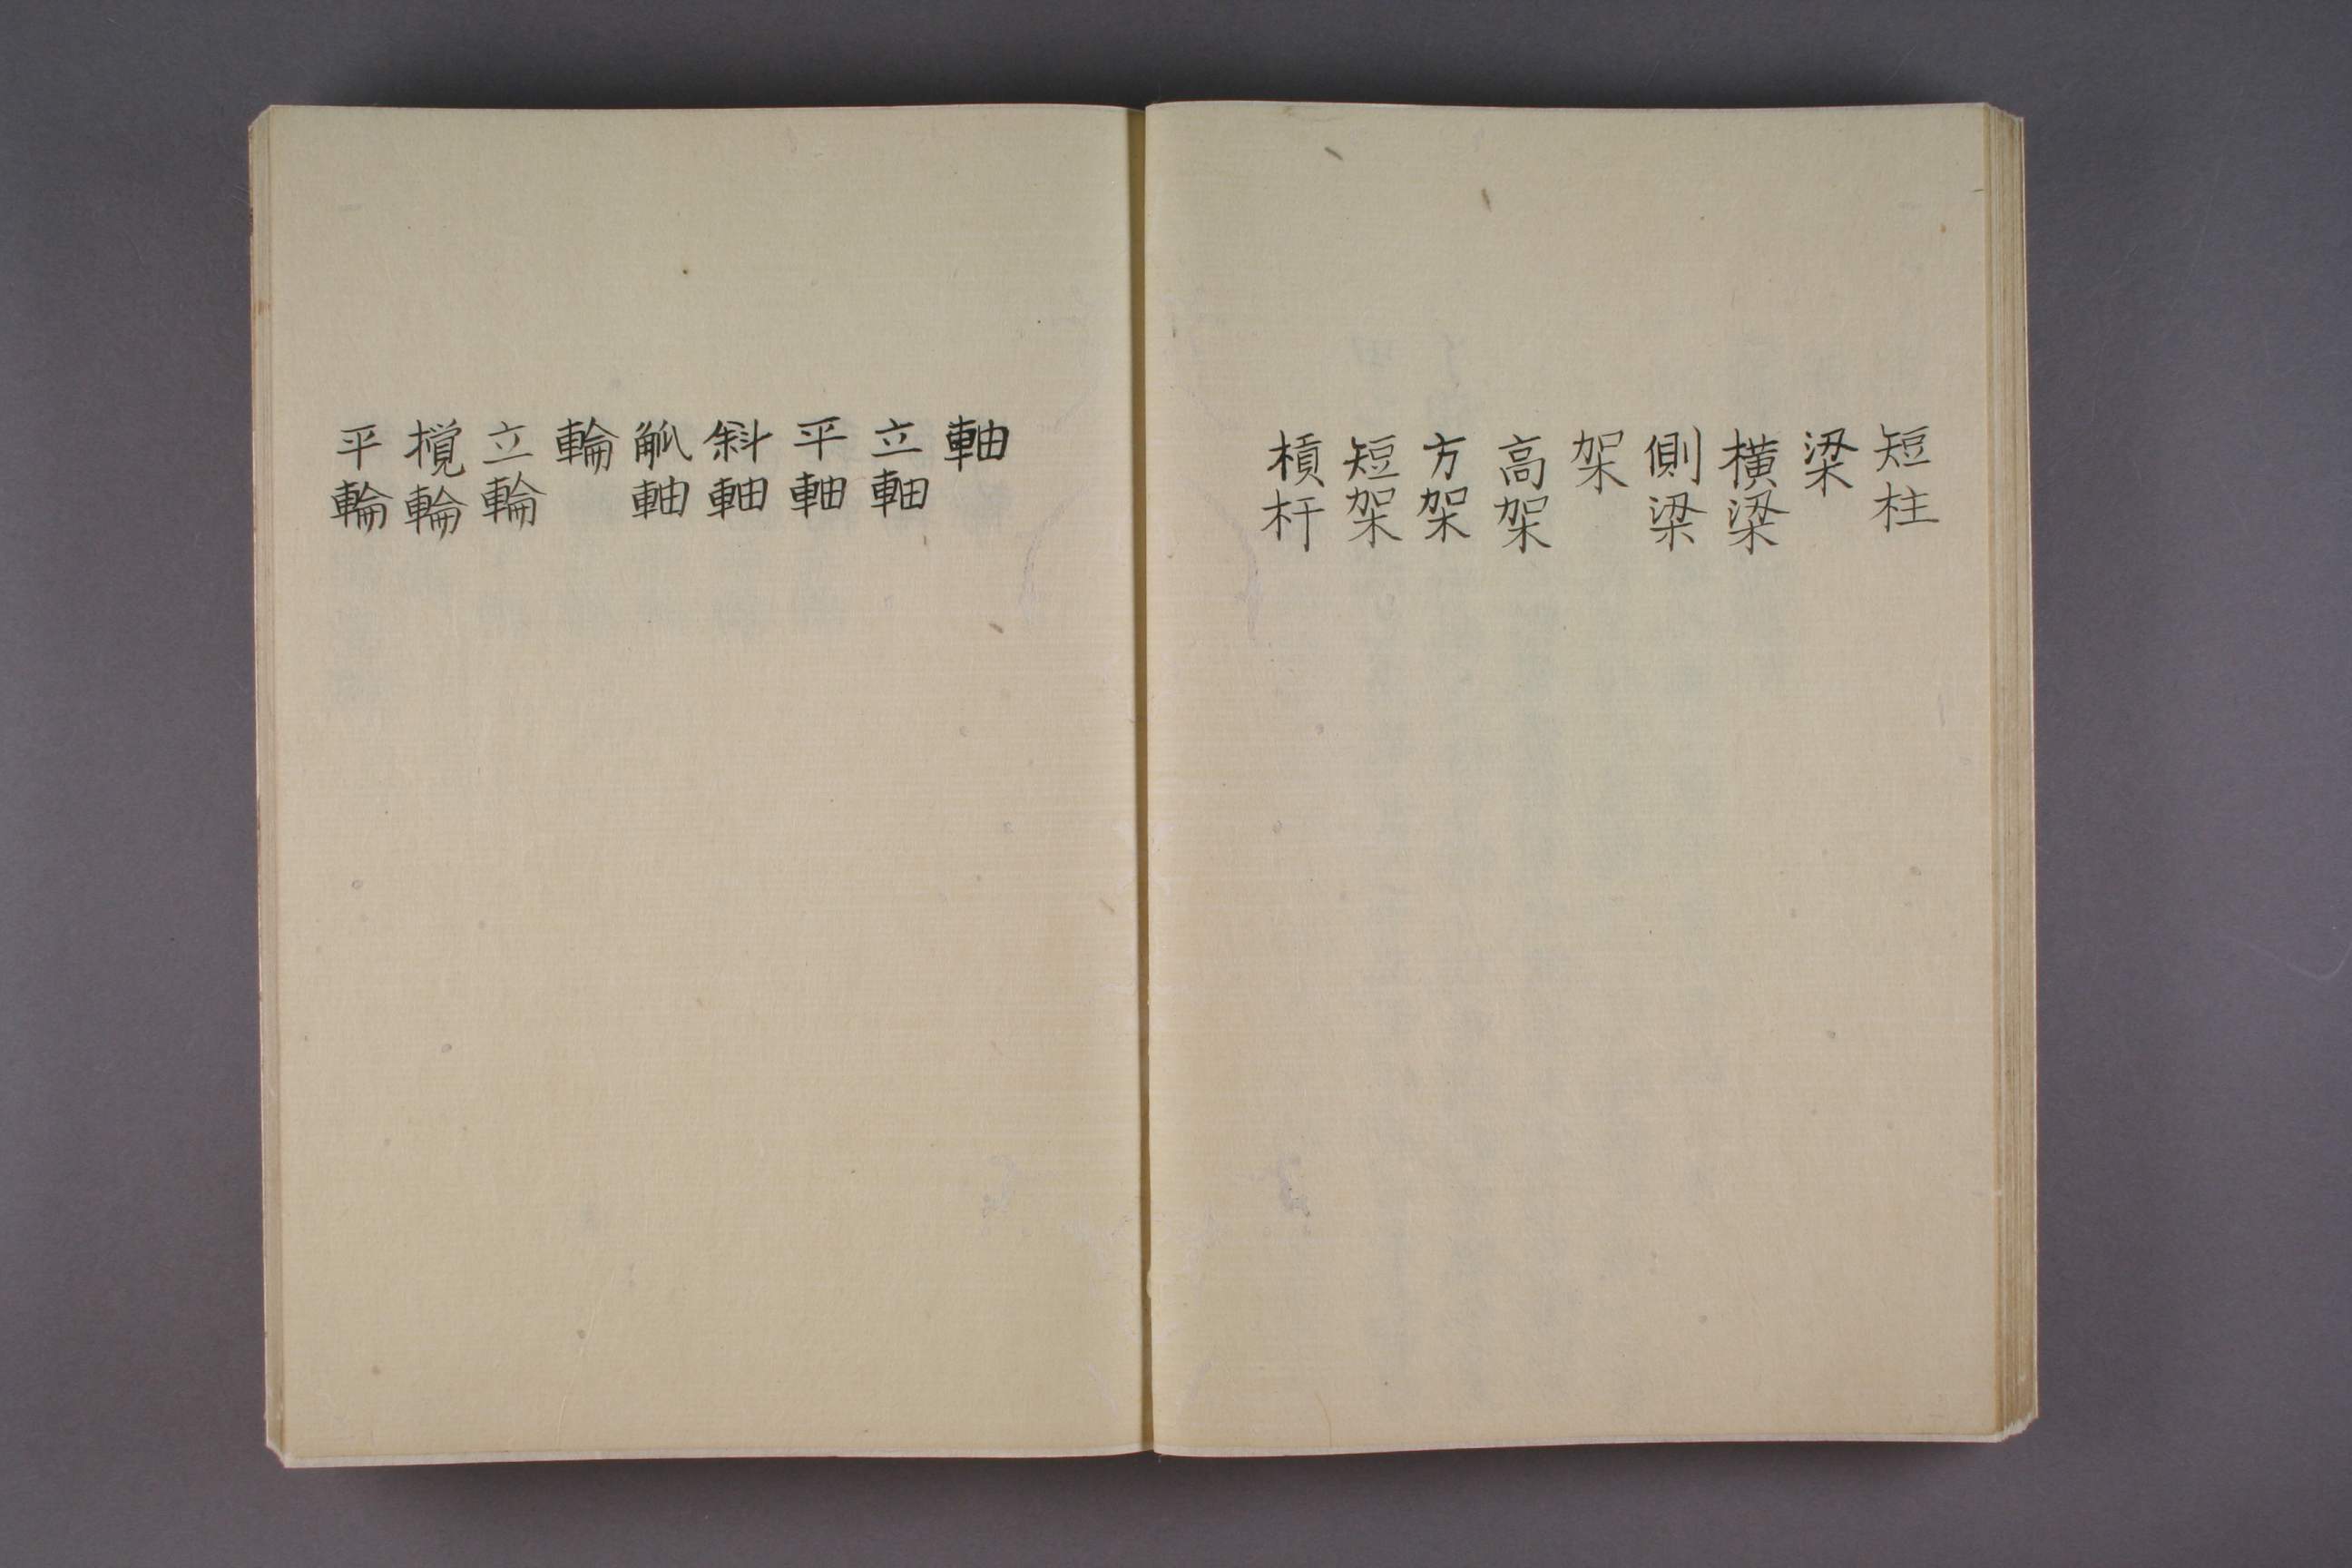 短柱
梁
横梁
側梁
架
高架
方架
短架
槓杆
軸
立軸
平軸
斜軸
觚軸
輪
立輪
攪輪
平輪